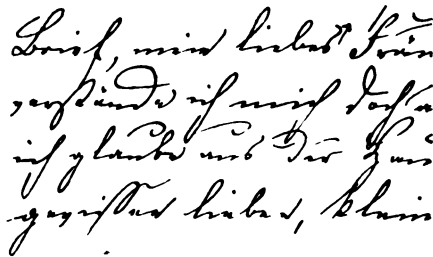 Brief, mein liebes Frän
verstände ich mich doch a
ich glaube aus der Hau
gewisser lieber, klein